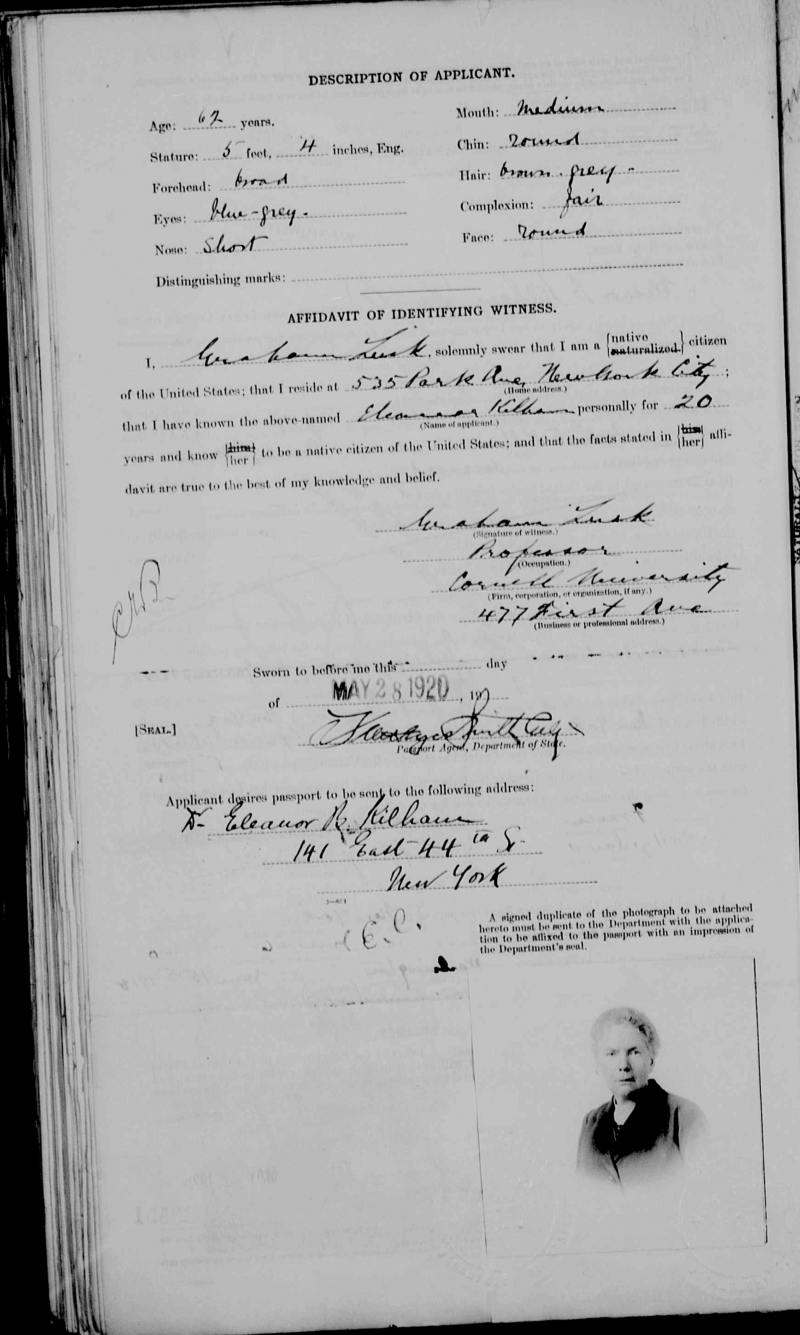 DESCRIPTION OF APPLICANT.
Age: 62 years.
Mouth: Medium
Stature: 5 feet, 4 inches, Eng.
Chin: Round
Forehead: broad
Hair: brown-grey-
Eyes: blue-grey.
Complexion: fair
Nose: Short
Face: Round
Distinguishing marks:
AFFIDAVIT OF IDENTIFYING WITNESS.
I, Graham Lusk, solemnly swear that I am a {native naturalized} citizen
of the United States; that I reside at 535 Park Ave, New York City;
(Home address.)
that I have known the above-named Eleanor Kilham personally for 20
(Name of applicant.)
years and know {him her} to be a native citizen of the United States; and that the facts stated in {his her} affi-
davit are true to the best of my knowledge and belief.
Graham Lusk
(Signature of witness.)
Professor
(Occupation.)
Cornell University
(Firm, corporation, or organization, if any.)
477 First Ave
(Business or professional address.)
Sworn to before me this day
of MAY 28 1920, 19
[SEAL.]
Passport Agent, Department of State.
Applicant desires passport to be sent to the following address:
Dr Eleanor B. Kilham
141 East 44th St.
New York
A signed duplicate of the photograph to be attached
hereto must be sent to the Department with the applica-
tion to be affixed to the passport with an impression of
the Department's seal.